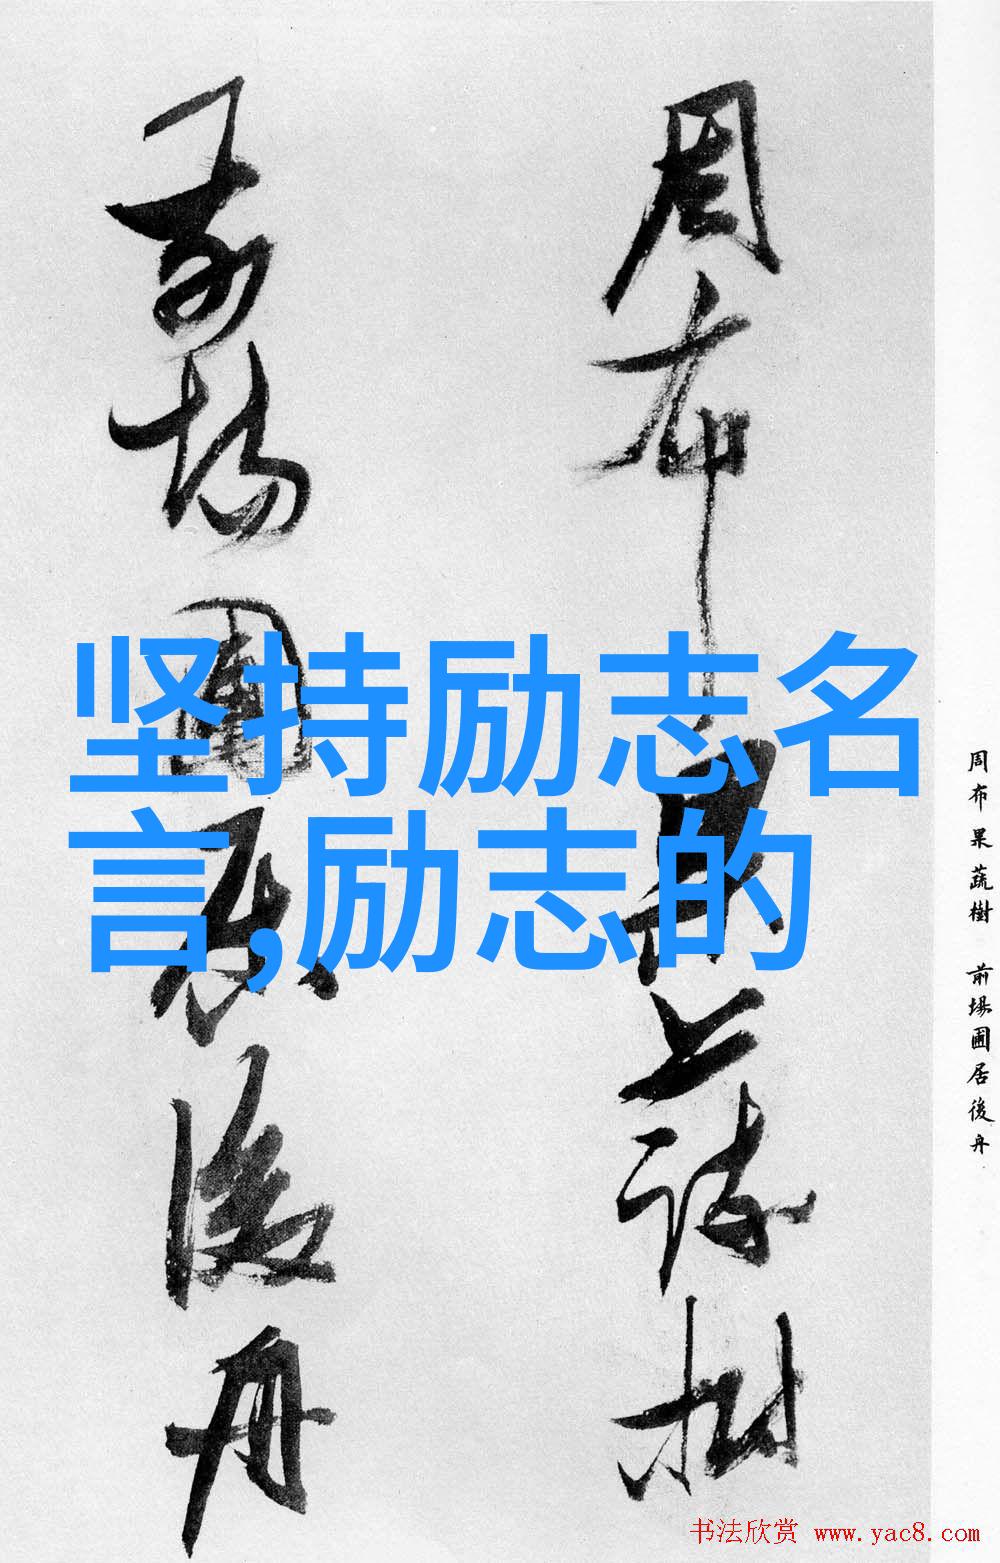 周布果蔬樹
前場圃居後舟
坚持励志名
言,励志的
周布果蔬樹 前場圃居後舟
书法欣赏 www.yac8.com